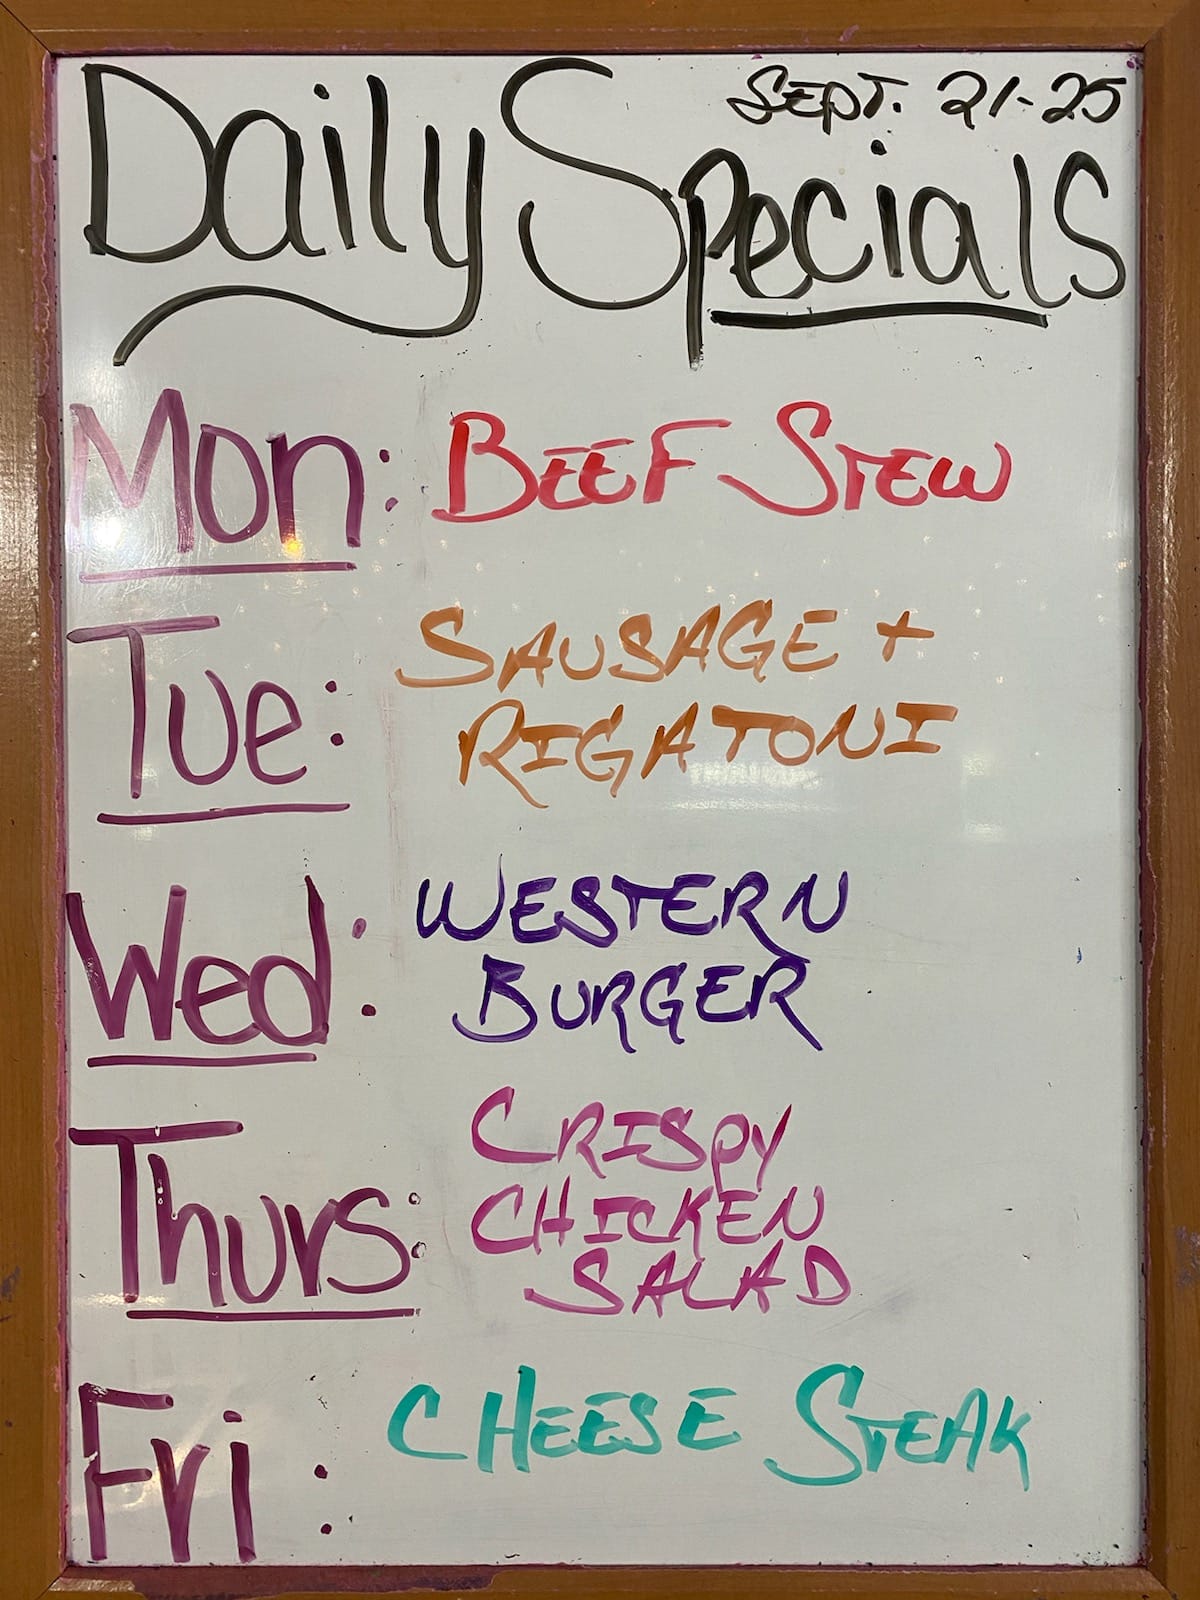 SEPT. 21-25
Daily Specials
Mon: BEEF STEW
Tue: SAUSAGE +
RIGATONI
Wed: WESTERN
BURGER
Thurs: CRISPY
CHICKEN
SALAD
Fri: CHEESE STEAK